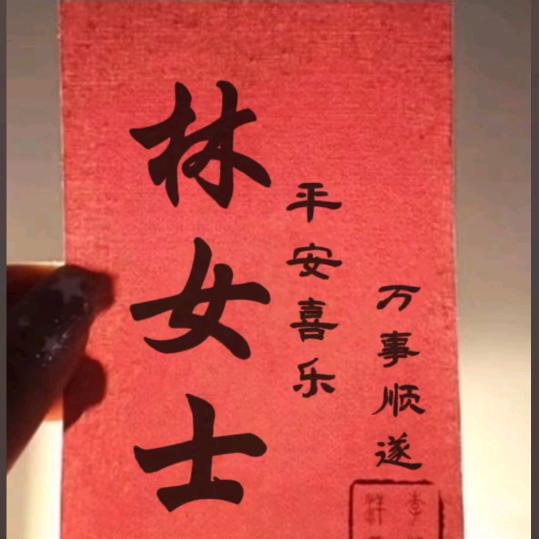 林女士
平安喜乐
万事顺遂